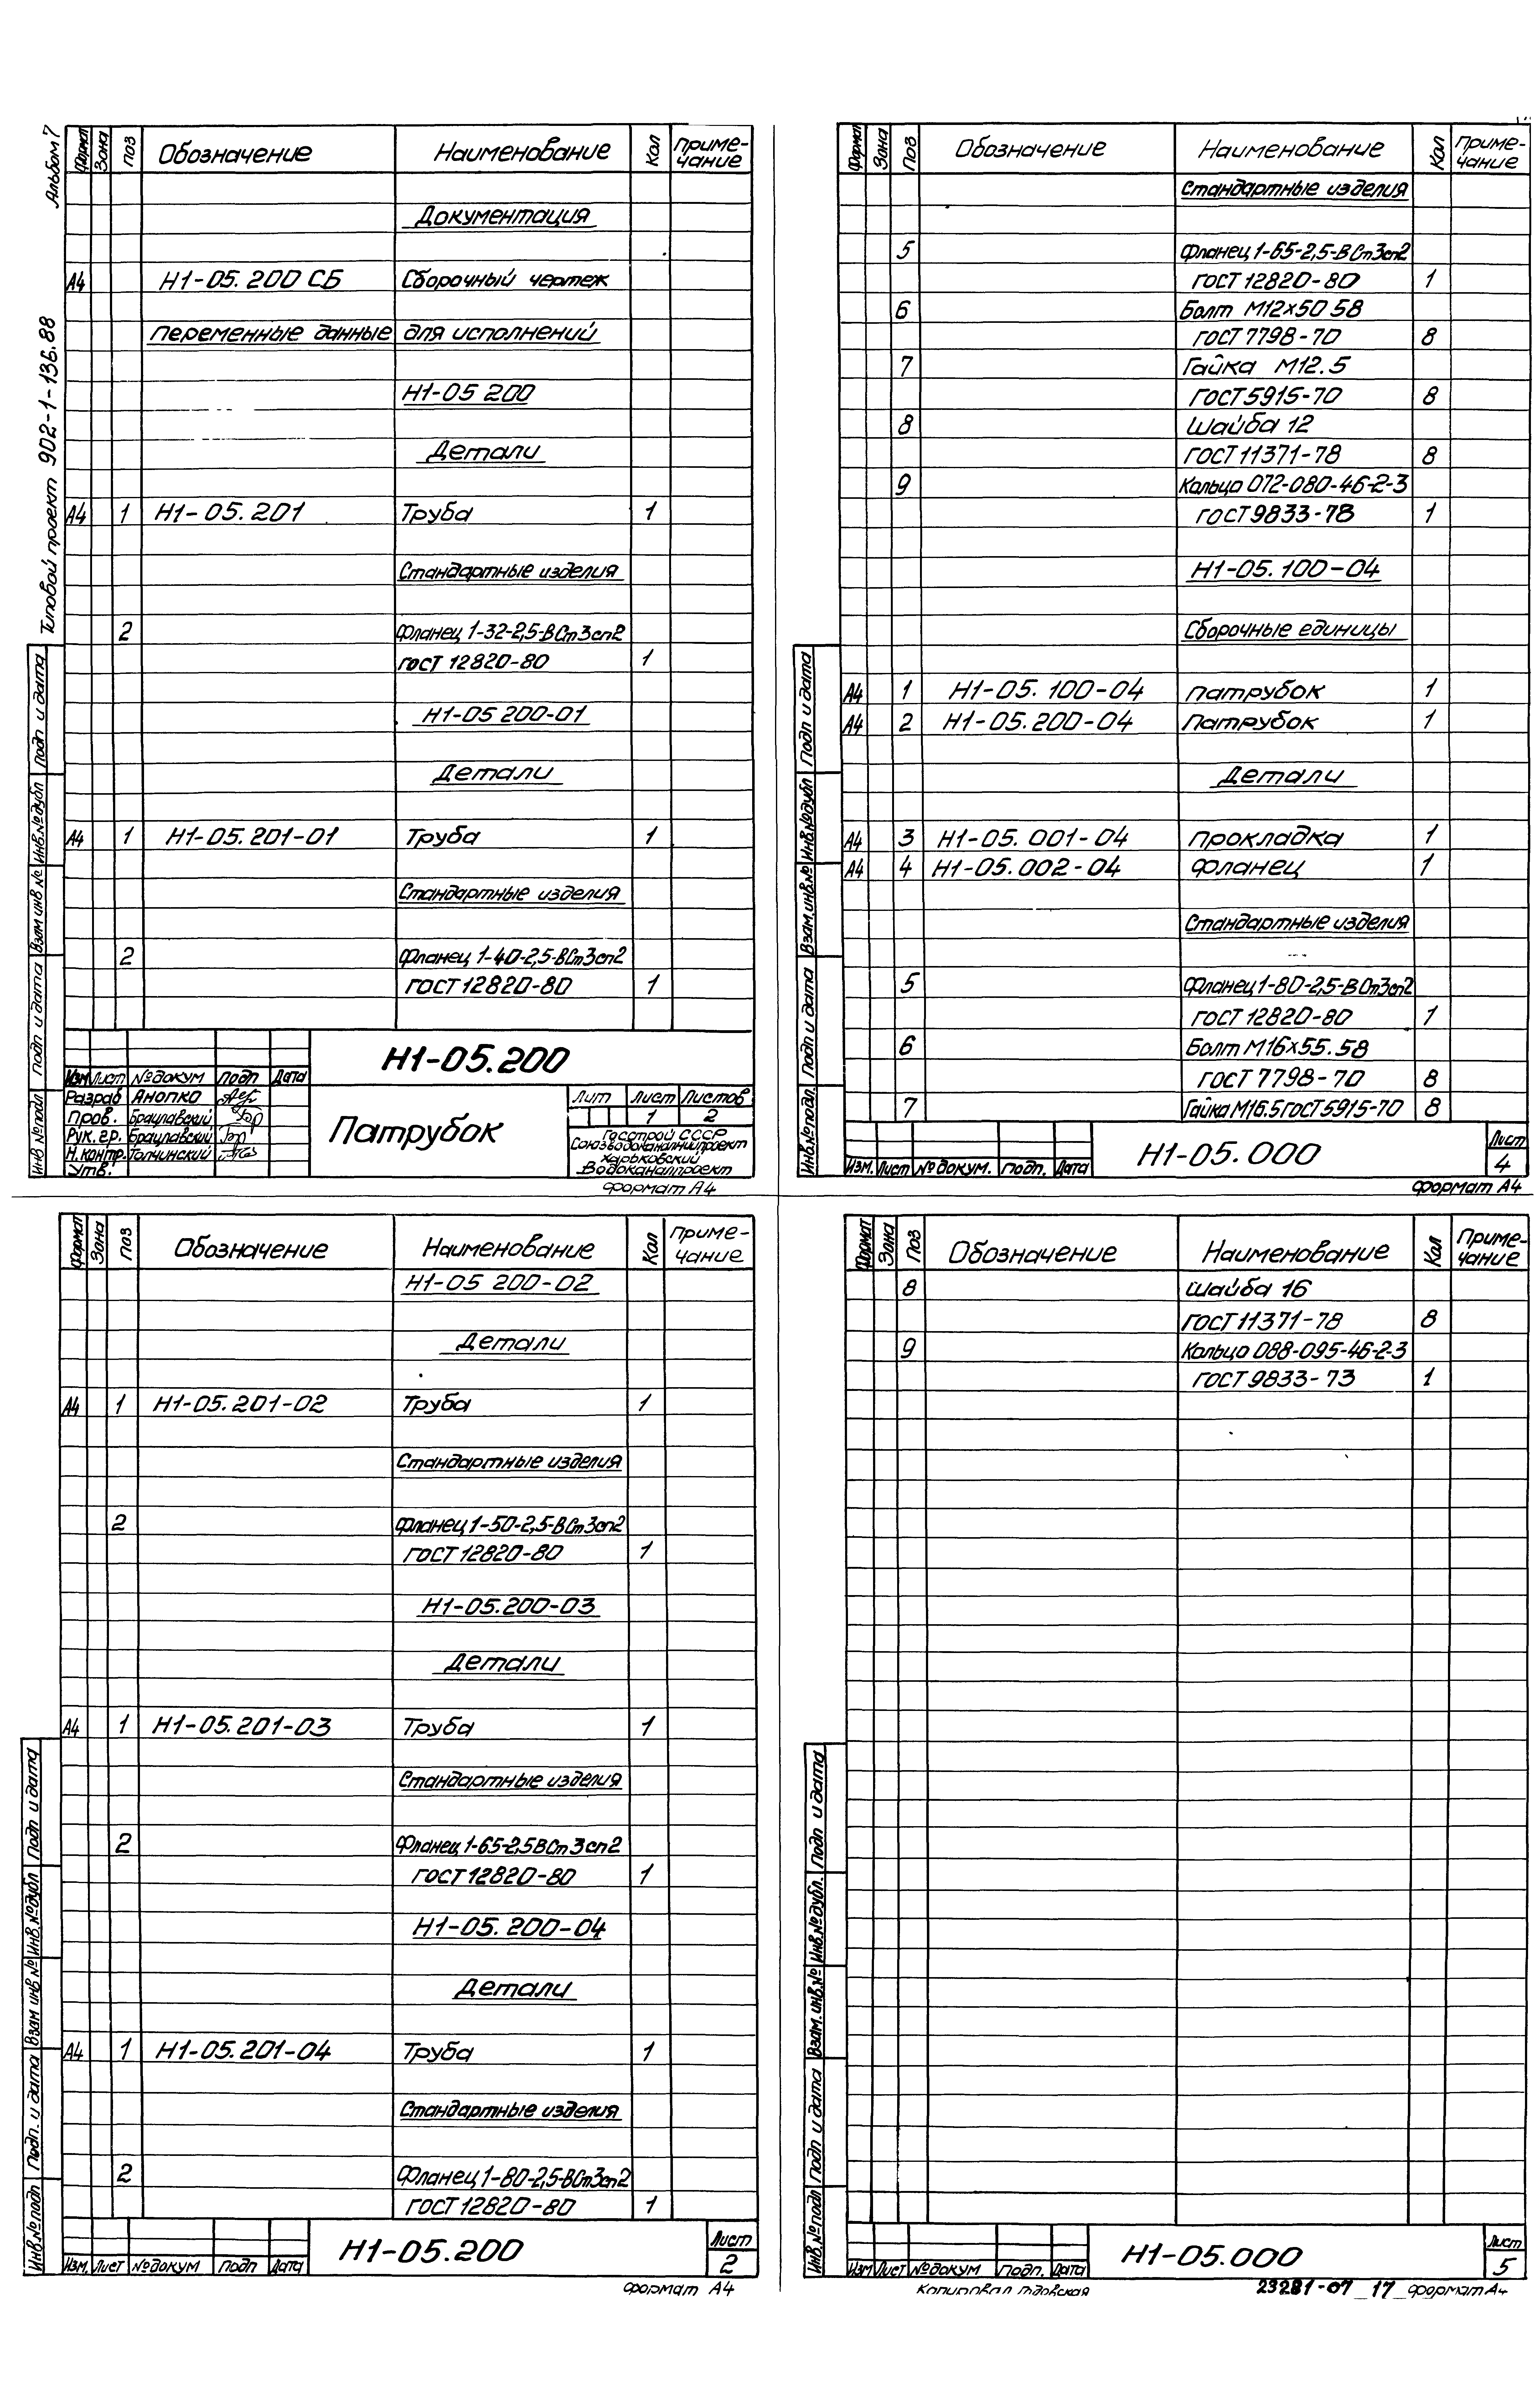 Альбом 7
Типовой проект 902-1-136.88
Формат Зона Поз Обозначение Наименование Кол Приме-чание
Документация
А4 Н1-05.200 СБ Сборочный чертеж
Переменные данные для исполнений
Н1-05 200
Детали
А4 1 Н1-05.201 Труба 1
Стандартные изделия
2 Фланец 1-32-2,5-ВСт3сп2
ГОСТ 12820-80 1
Н1-05 200-01
Детали
А4 1 Н1-05.201-01 Труба 1
Стандартные изделия
2 Фланец 1-40-2,5-ВСт3сп2
ГОСТ 12820-80 1
Инв № подл Подп и дата Взам инв № Инв.№ дубл Подп и дата
Изм Лист № докум Подп Дата
Разраб Анопко
Пров. Брацлавский
Рук. гр. Брацлавский
Н. контр. Толчинский
Утв.
Н1-05.200
Патрубок
Лит Лист Листов
1 2
Госстрой СССР
Союзводоканалниипроект
Харьковский
Водоканалпроект
Формат А4
Формат Зона Поз Обозначение Наименование Кол Приме-чание
Стандартные изделия
5 Фланец 1-65-2,5-ВСт3сп2
ГОСТ 12820-80 1
6 Болт М12х50 58
ГОСТ 7798-70 8
7 Гайка М12.5
ГОСТ 5915-70 8
8 Шайба 12
ГОСТ 11371-78 8
9 Кольцо 072-080-46-2-3
ГОСТ 9833-73 1
Н1-05.100-04
Сборочные единицы
А4 1 Н1-05.100-04 Патрубок 1
А4 2 Н1-05.200-04 Патрубок 1
Детали
А4 3 Н1-05.001-04 Прокладка 1
А4 4 Н1-05.002-04 Фланец 1
Стандартные изделия
5 Фланец 1-80-2,5-ВСт3сп2
ГОСТ 12820-80 1
6 Болт М16х55.58
ГОСТ 7798-70 8
7 Гайка М16.5 ГОСТ 5915-70 8
Инв.№ подл. Подп и дата Взам.инв.№ Инв.№ дубл Подп и дата
Изм. Лист № докум. Подп. Дата
Н1-05.000
Лист
4
Формат А4
Формат Зона Поз Обозначение Наименование Кол Приме-чание
Н1-05 200-02
Детали
А4 1 Н1-05.201-02 Труба 1
Стандартные изделия
2 Фланец 1-50-2,5-ВСт3сп2
ГОСТ 12820-80 1
Н1-05.200-03
Детали
А4 1 Н1-05.201-03 Труба 1
Стандартные изделия
2 Фланец 1-65-2,5ВСт3сп2
ГОСТ 12820-80 1
Н1-05.200-04
Детали
А4 1 Н1-05.201-04 Труба 1
Стандартные изделия
2 Фланец 1-80-2,5-ВСт3сп2
ГОСТ 12820-80 1
Инв.№ подл Подп. и дата Взам инв № Инв.№ дубл Подп и дата
Изм. Лист № докум Подп Дата
Н1-05.200
Лист
2
Формат А4
Формат Зона Поз Обозначение Наименование Кол Приме-чание
8 Шайба 16
ГОСТ 11371-78 8
9 Кольцо 088-095-46-2-3
ГОСТ 9833-73 1
Инв.№ подл Подп и дата Взам.инв.№ Инв.№ дубл. Подп и дата
Изм Лист № докум Подп. Дата
Н1-05.000
Лист
5
Копировал
23281-07 17 Формат А4